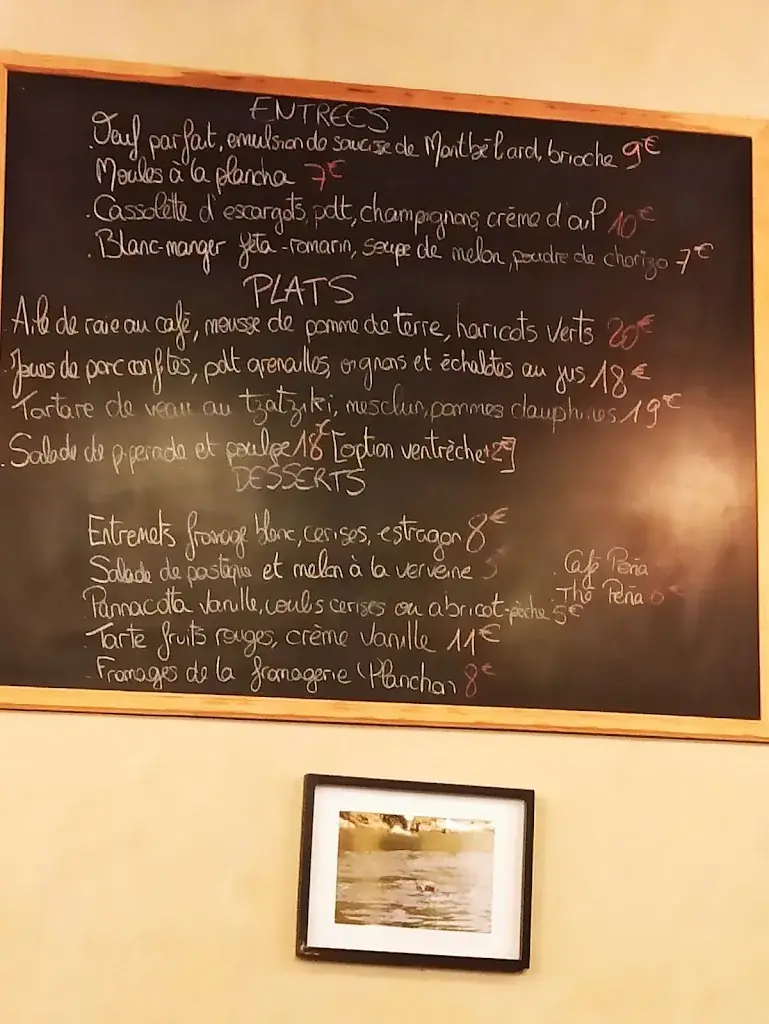 ENTREES
.Oeuf parfait, emulsion de saucisse de Montbéliard, brioche 9€
Moules à la plancha 7€
.Cassolette d'escargots, pdt, champignons, crème d'ail 10€
.Blanc-manger feta-romarin, soupe de melon, poudre de chorizo 7€
PLATS
.Aile de raie au café, mousse de pomme de terre, haricots verts 20€
.Joues de porc confites, pdt grenailles, oignons et échalotes au jus 18€
Tartare de veau au tzatziki, mesclun, pommes dauphines 19€
.Salade de piperade et poulpe 18€ [option ventrèche +2€]
DESSERTS
Entremets fromage blanc, cerises, estragon 8€
Salade de pastèque et melon à la verveine 5
. Café Peña
Pannacotta vanille, coulis cerises ou abricot-pêche 5€
. Thé Peña
.Tarte fruits rouges, crème vanille 11€
.Fromages de la fromagerie (Planchon) 8€